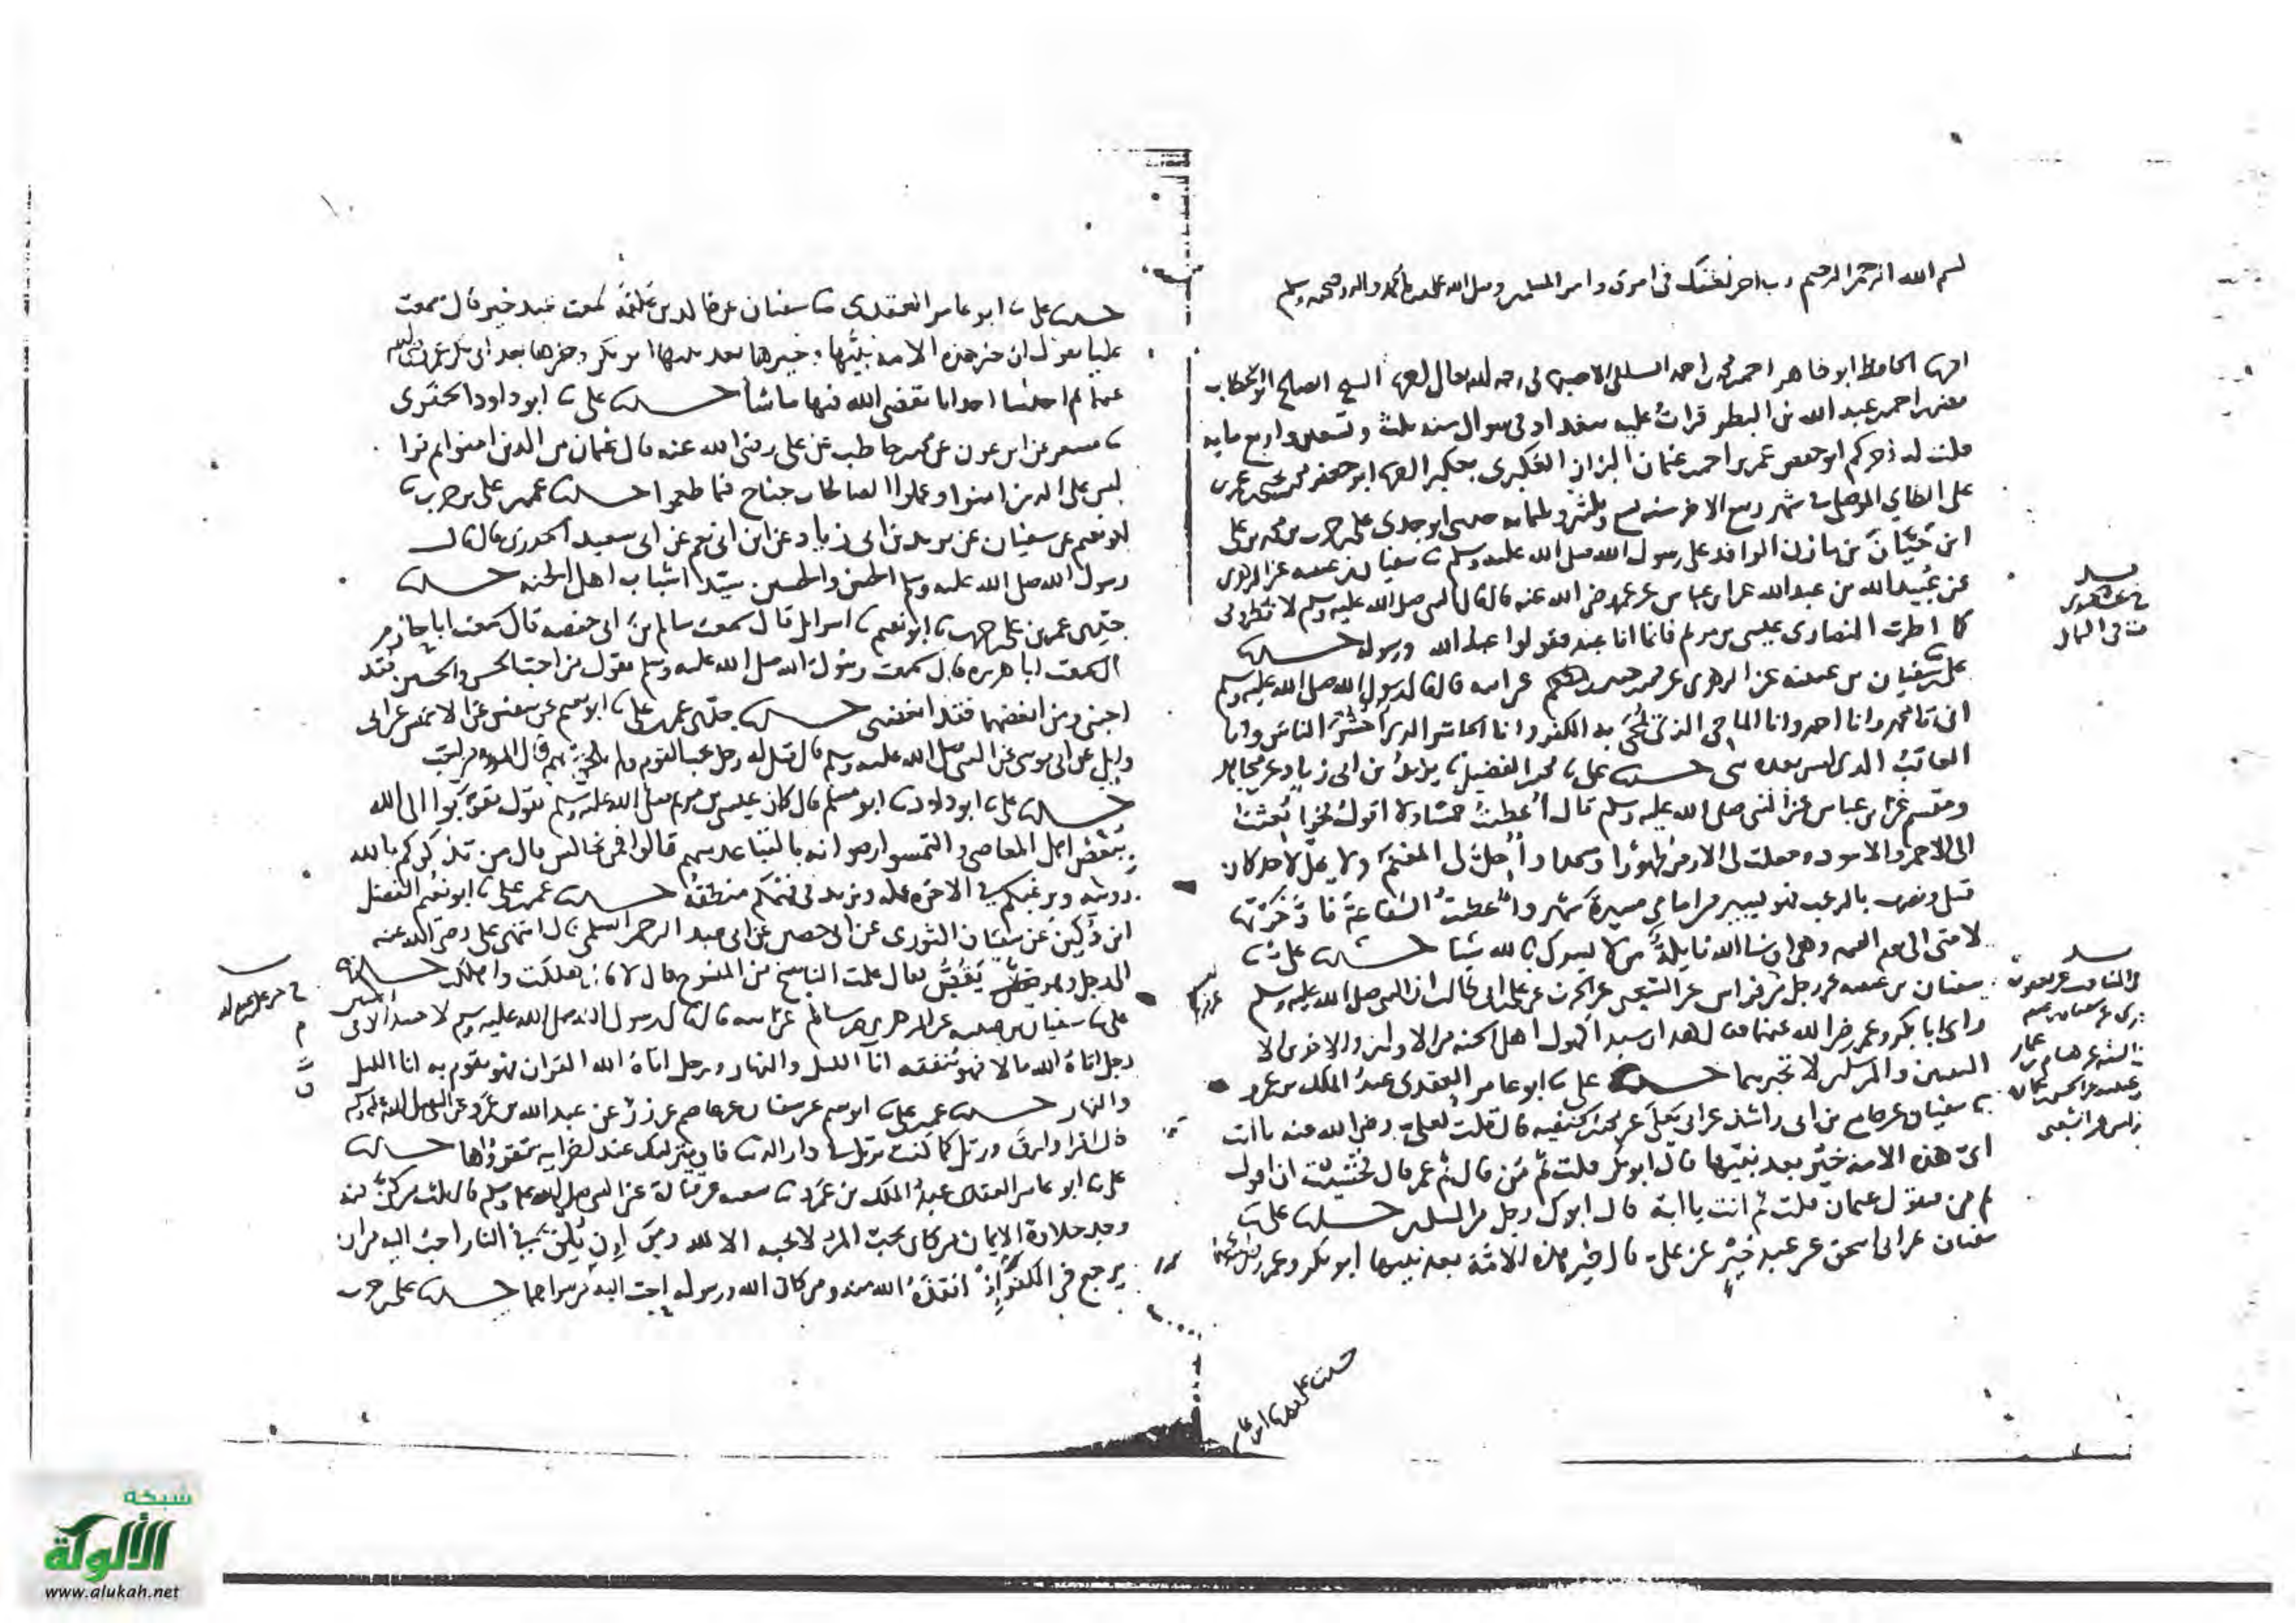 بسم الله الرحمن الرحيم رب اختم بخير في امري وامر المسلمين وصلى الله على سيدنا محمد واله وصحبه وسلم
اخبرنا الحافظ ابو طاهر احمد بن محمد بن احمد السلفي الاصبهاني رحمه الله تعالى اخبرنا الشيخ الصالح ابو الخطاب
نصر بن احمد بن عبد الله بن البطر قرأت عليه ببغداد في شوال سنة ثلث وتسعين واربع مايه
قلت له اخبركم ابو حفص عمر بن احمد بن عثمان البزاز العكبري بعكبرا اخبرنا ابو جعفر محمد بن يحيى بن عمر بن
علي الطاي الموصلي في شهر ربيع الاخر سنه تسع وثلثين وثلثمايه حدثني ابو جدي علي بن حرب بن محمد بن علي
ابن حيان بن مازن الوافد على رسول الله صلى الله عليه وسلم ثنا سفيان بن عيينه عن الزهري
عن عبيد الله بن عبد الله عن ابن عباس عن عمر رضي الله عنه قال قال النبي صلى الله عليه وسلم لا تطروني
كما اطرت النصارى عيسى بن مريم فانما انا عبد فقولوا عبد الله ورسوله حدثنا
علي ثنا سفيان بن عيينه عن الزهري عن محمد بن جبير بن مطعم عن ابيه قال قال رسول الله صلى الله عليه وسلم
اني انا محمد وانا احمد وانا الماحي الذي يمحى به الكفر وانا الحاشر الذي احشر الناس وانا
العاقب الذي ليس بعده نبي حدثنا علي ثنا محمد بن الفضيل ثنا يزيد بن ابي زياد عن مجاهد
ومقسم عن ابن عباس عن النبي صلى الله عليه وسلم قال اعطيت خمسا ولا اقول فخرا بعثت
الى الاحمر والاسود وجعلت لي الارض طهورا ومسجدا واحل لي المغنم ولا يحل لاحد كان
قبلي ونصرت بالرعب فهو يسير من امامي مسيرة شهر واعطيت الشفاعة فاذخرتها
لامتي الى يوم القيمه وهي ان شا الله نايلة من لا يشرك بالله شيا حدثنا علي ثنا
سفيان بن عيينه عن رجل عن فراس عن الشعبي عن الحرث عن علي ان النبي صلى الله عليه وسلم
راى ابا بكر وعمر رضي الله عنهما فقال هذان سيدا كهول اهل الجنه من الاولين والاخرين الا
النبيين والمرسلين لا تخبرهما حدثنا علي ثنا ابو عامر العقدي عبد الملك بن عمرو
ثنا سفيان عن جامع بن ابي راشد عن ابي يعلى عن محمد بن الحنفيه قال قلت لعلي رضي الله عنه يا ابت
اي هذه الامه خير بعد نبيها قال ابو بكر قلت ثم من قال ثم عمر قال فخشيت ان اقول
ثم من فيقول عثمان قلت ثم انت يا ابة قال ابوك رجل من المسلمين حدثنا علي ثنا
سفيان عن ابي اسحق عن عبد خير عن علي قال خير هذه الامة بعد نبيها ابو بكر وعمر رضي الله عنهما
حدثنا علي ثنا ابو عامر
حدثنا علي ثنا ابو عامر العقدي ثنا سفيان عن خالد بن علقمة سمعت عبد خير قال سمعت
عليا يقول ان خير هذه الامه نبيها وخيرها بعد نبيها ابو بكر وخيرها بعد ابي بكر عمر رضي الله
عنهما ثم احدثنا احداثا يقضي الله فيها ما شا حدثنا علي ثنا ابو داود الحفري
ثنا مسعر عن ابن عون عن محمد بن حاطب عن علي رضي الله عنه قال عثمان من الذين امنوا ثم قرا
ليس على الذين امنوا وعملوا الصالحات جناح فيما طعموا حدثنا عمر بن علي بن حرب ثنا
ابو نعيم عن سفيان عن يزيد بن ابي زياد عن ابن ابي نعم عن ابي سعيد الخدري قال قال
رسول الله صلى الله عليه وسلم الحسن والحسين سيدا شباب اهل الجنه حدثنا
حدثني عمر بن علي بن حرب ثنا ابو نعيم ثنا اسرايل قال سمعت سالم بن ابي حفصه قال سمعت ابا حازم
قال سمعت ابا هريره قال سمعت رسول الله صلى الله عليه وسلم يقول من احب الحسن والحسين فقد
احبني ومن ابغضهما فقد ابغضني حدثنا حدثني عمر بن علي ثنا ابو نعيم عن سفين عن الاعمش عن ابي
وايل عن ابي موسى عن النبي صلى الله عليه وسلم قال قيل له رجل يحب القوم ولم يلحق بهم قال المرء مع من احب
حدثنا علي ثنا ابو داود ثنا ابو مسلم قال كان عيسى بن مريم صلى الله عليه وسلم يقول تقربوا الى الله
ببغض اهل المعاصي والتمسوا رضوانه بالتباعد منهم قالوا فمن نجالس قال من تذكركم بالله
رويته ويرغبكم في الاخره عمله ويزيد في فهمكم منطقه حدثنا عمر بن علي ثنا ابو نعيم الفضل
ابن دكين عن سفيان الثوري عن ابي حصين عن ابي عبد الرحمن السلمي قال انتهى علي رضي الله عنه
الى رجل وهو يقص فقال علمت الناسخ من المنسوخ قال لا قال هلكت واهلكت حدثنا
علي ثنا سفيان بن عيينه عن الزهري عن سالم عن ابيه قال قال رسول الله صلى الله عليه وسلم لا حسد الا في اثنتين
رجل اتاه الله مالا فهو ينفقه انآ الليل والنهار ورجل اتاه الله القران فهو يقوم به انا الليل
والنهار حدثنا عمر بن علي ثنا ابو نعيم عن سفيان عن عاصم عن زر عن عبد الله بن عمرو عن النبي صلى الله عليه وسلم
قال اقرا وارق ورتل كما كنت ترتل في دار الدنيا فان منزلتك عند اخر ايه تقرؤاها حدثنا
علي ثنا ابو عامر العقدي عبد الملك بن عمرو ثنا شعبه عن قتادة عن انس عن النبي صلى الله عليه وسلم قال ثلث من كن فيه
وجد حلاوة الايمان من كان يحب المرء لا يحبه الا لله ومن ان يلقى في النار احب اليه من ان
يرجع في الكفر اذ انقذه الله منه ومن كان الله ورسوله احب اليه مما سواهما حدثنا علي بن حرب
شبكة
الألوكة
www.alukah.net